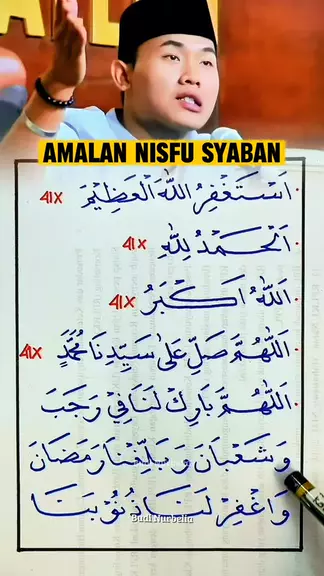 AMALAN NISFU SYABAN
اَسْتَغْفِرُ اللّٰهَ الْعَظِيْمَ 41X
اَلْحَمْدُ لِلّٰهِ 41X
اَللّٰهُ اَكْبَرُ 41X
اَللّٰهُمَّ صَلِّ عَلٰى سَيِّدِنَا مُحَمَّدٍ 41X
اَللّٰهُمَّ بَارِكْ لَنَا فِيْ رَجَبَ
وَشَعْبَانَ وَبَلِّغْنَا رَمَضَانَ
وَاغْفِرْ لَنَا ذُنُوْبَنَا
Budi Nurbelia